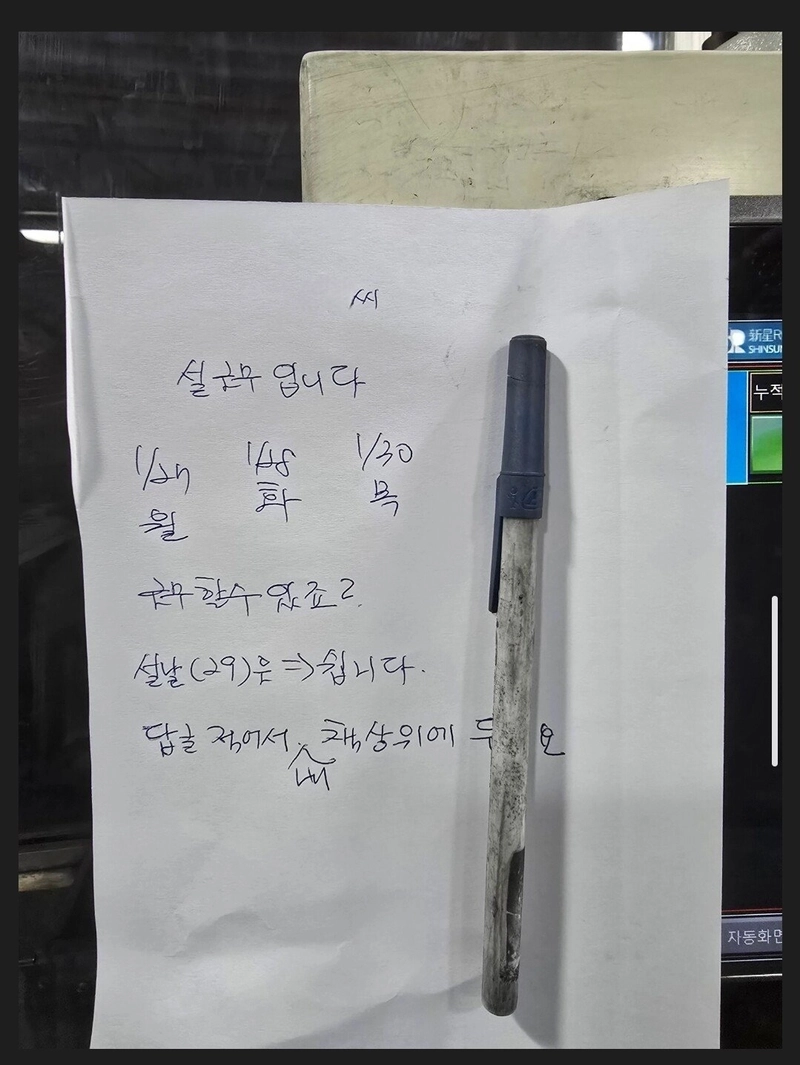 씨
설 근무 입니다
1/27 1/28 1/30
월 화 목
근무 할수 있죠?
설날(29)은 => 쉽니다.
답글 적어서 내 책상위에 두 요
新星
SHINSUN
누적
자동화면